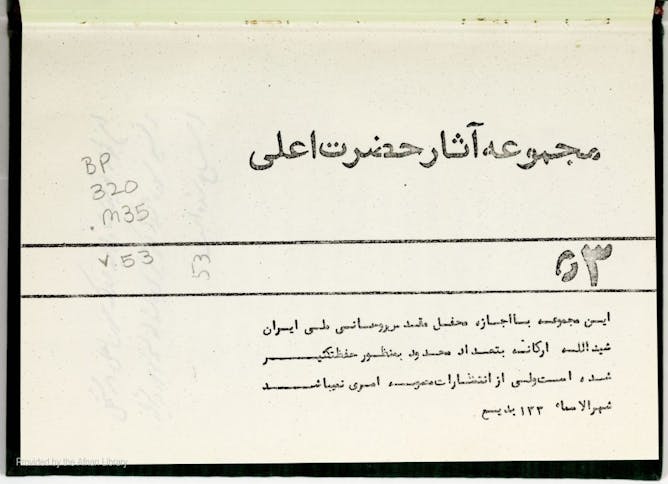 مجموعه آثار حضرت اعلی
BP
320
.M35
v 53
53
۵۳
این مجموعه با اجازه محفل مقدس روحانی ملی ایران
شیدالله ارکانه بتعداد محدود بمنظور حفظ تکثیر
شده است ولی از انتشارات مصوبه امری نمیباشد
شهرالاسماء ۱۳۳ بدیع
Provided by the Afnan Library